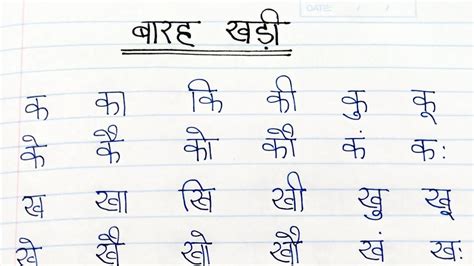 DATE: / /
बारह खड़ी
क का कि की कु कू
के कै को कौ कं कः
ख खा खि खी खु खू
खे खै खो खौ खं खः